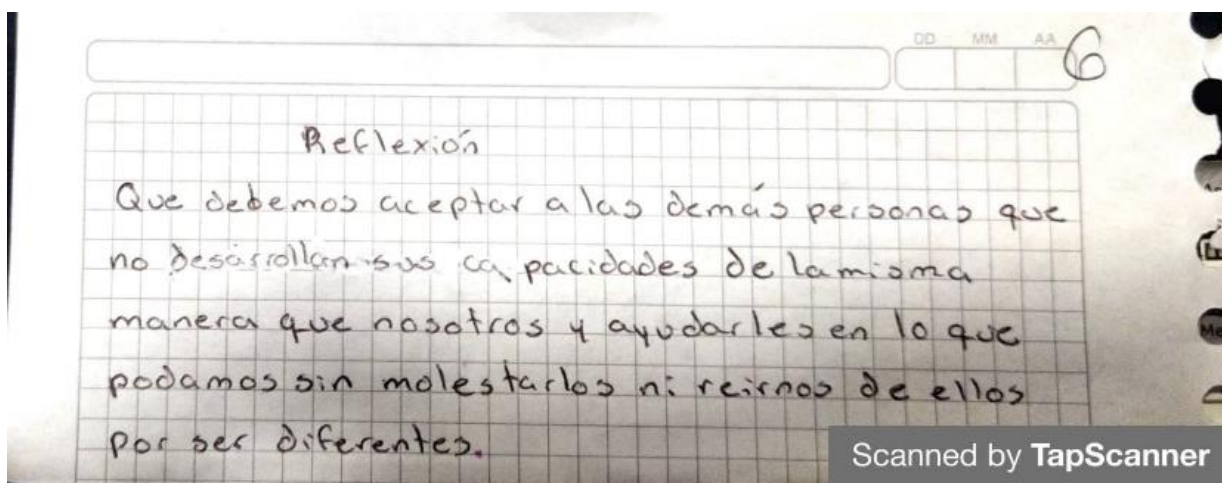 DD MM AA
6
Reflexión
Que debemos aceptar a las demás personas que
no desarrollan sus capacidades de la misma
manera que nosotros y ayudarles en lo que
podamos sin molestarlos ni reirnos de ellos
por ser diferentes.
Scanned by TapScanner